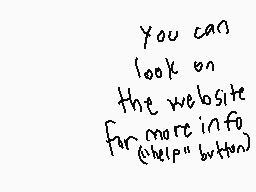 you can
look on
the website
for more info
("help" button)